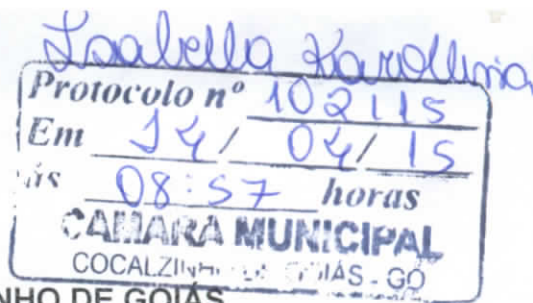 Isabella Karollina
Protocolo nº 102115
Em 14/ 04/ 15
às 08:57 horas
CAMARA MUNICIPAL
COCALZINHO DE GOIÁS - GO
NHO DE GOIÁS